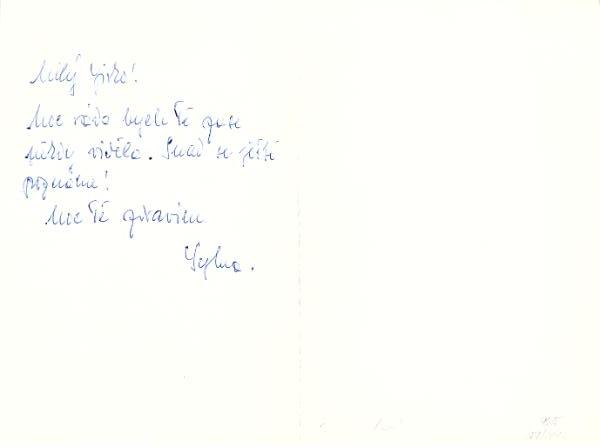 Milý Jirko!
Moc ráda bych Tě zase
někdy viděla. Snad se ještě
poznáme!
Moc Tě zdravím
Sylva.